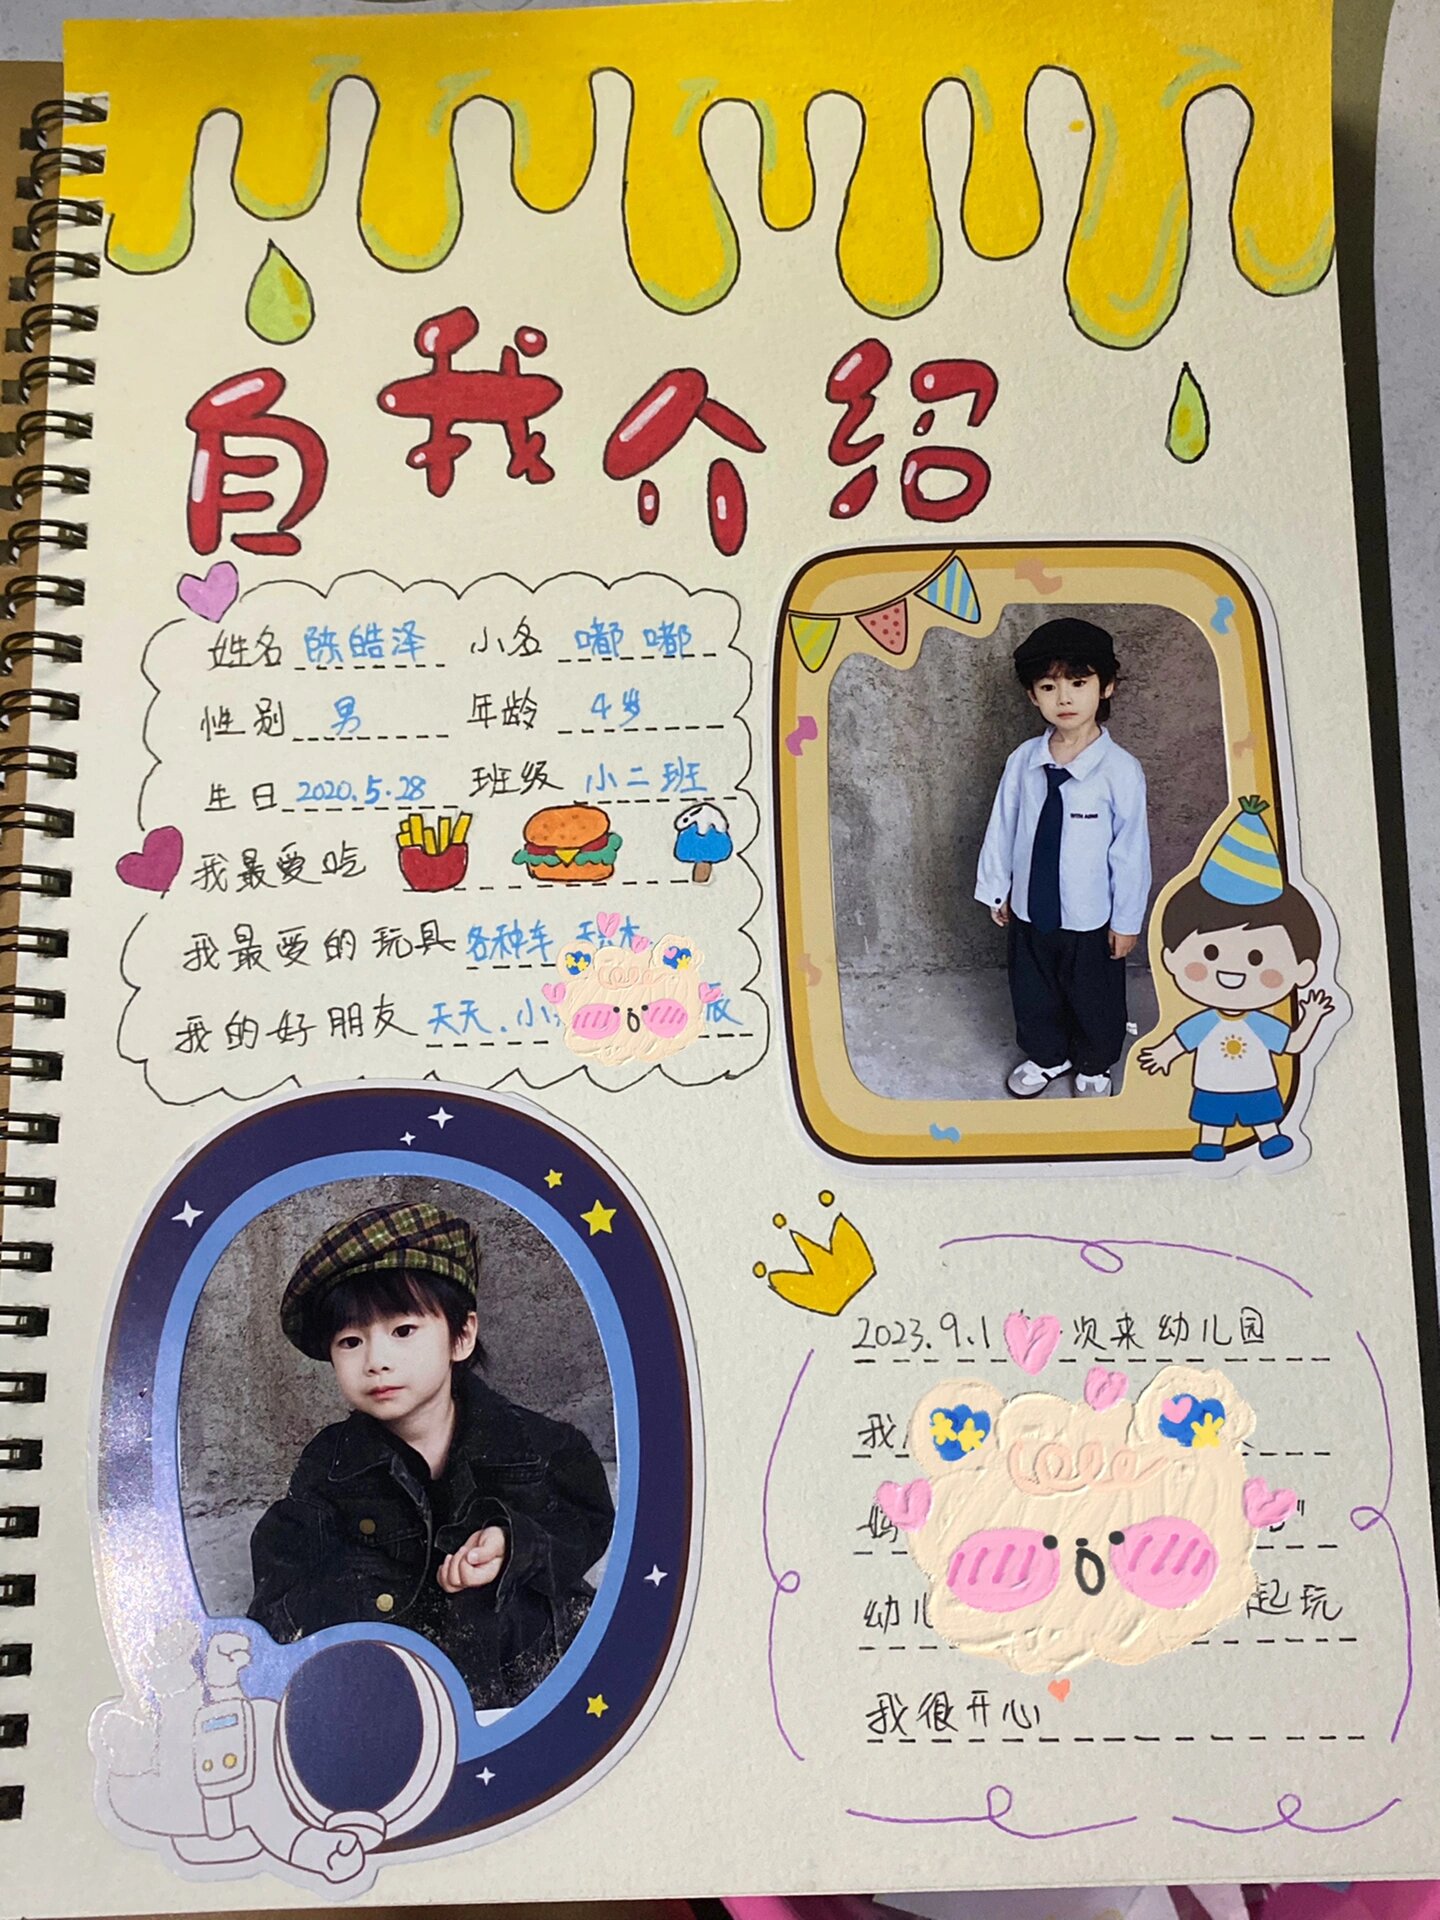 自我介绍
姓名 陈皓泽 小名 嘟嘟
性别 男 年龄 4岁
生日 2020.5.28 班级 小二班
我最爱吃
我最爱的玩具 各种车 积木
我的好朋友 天天、小 辰
2023.9.1 次来幼儿园
我
妈 "
幼儿 起玩
我很开心